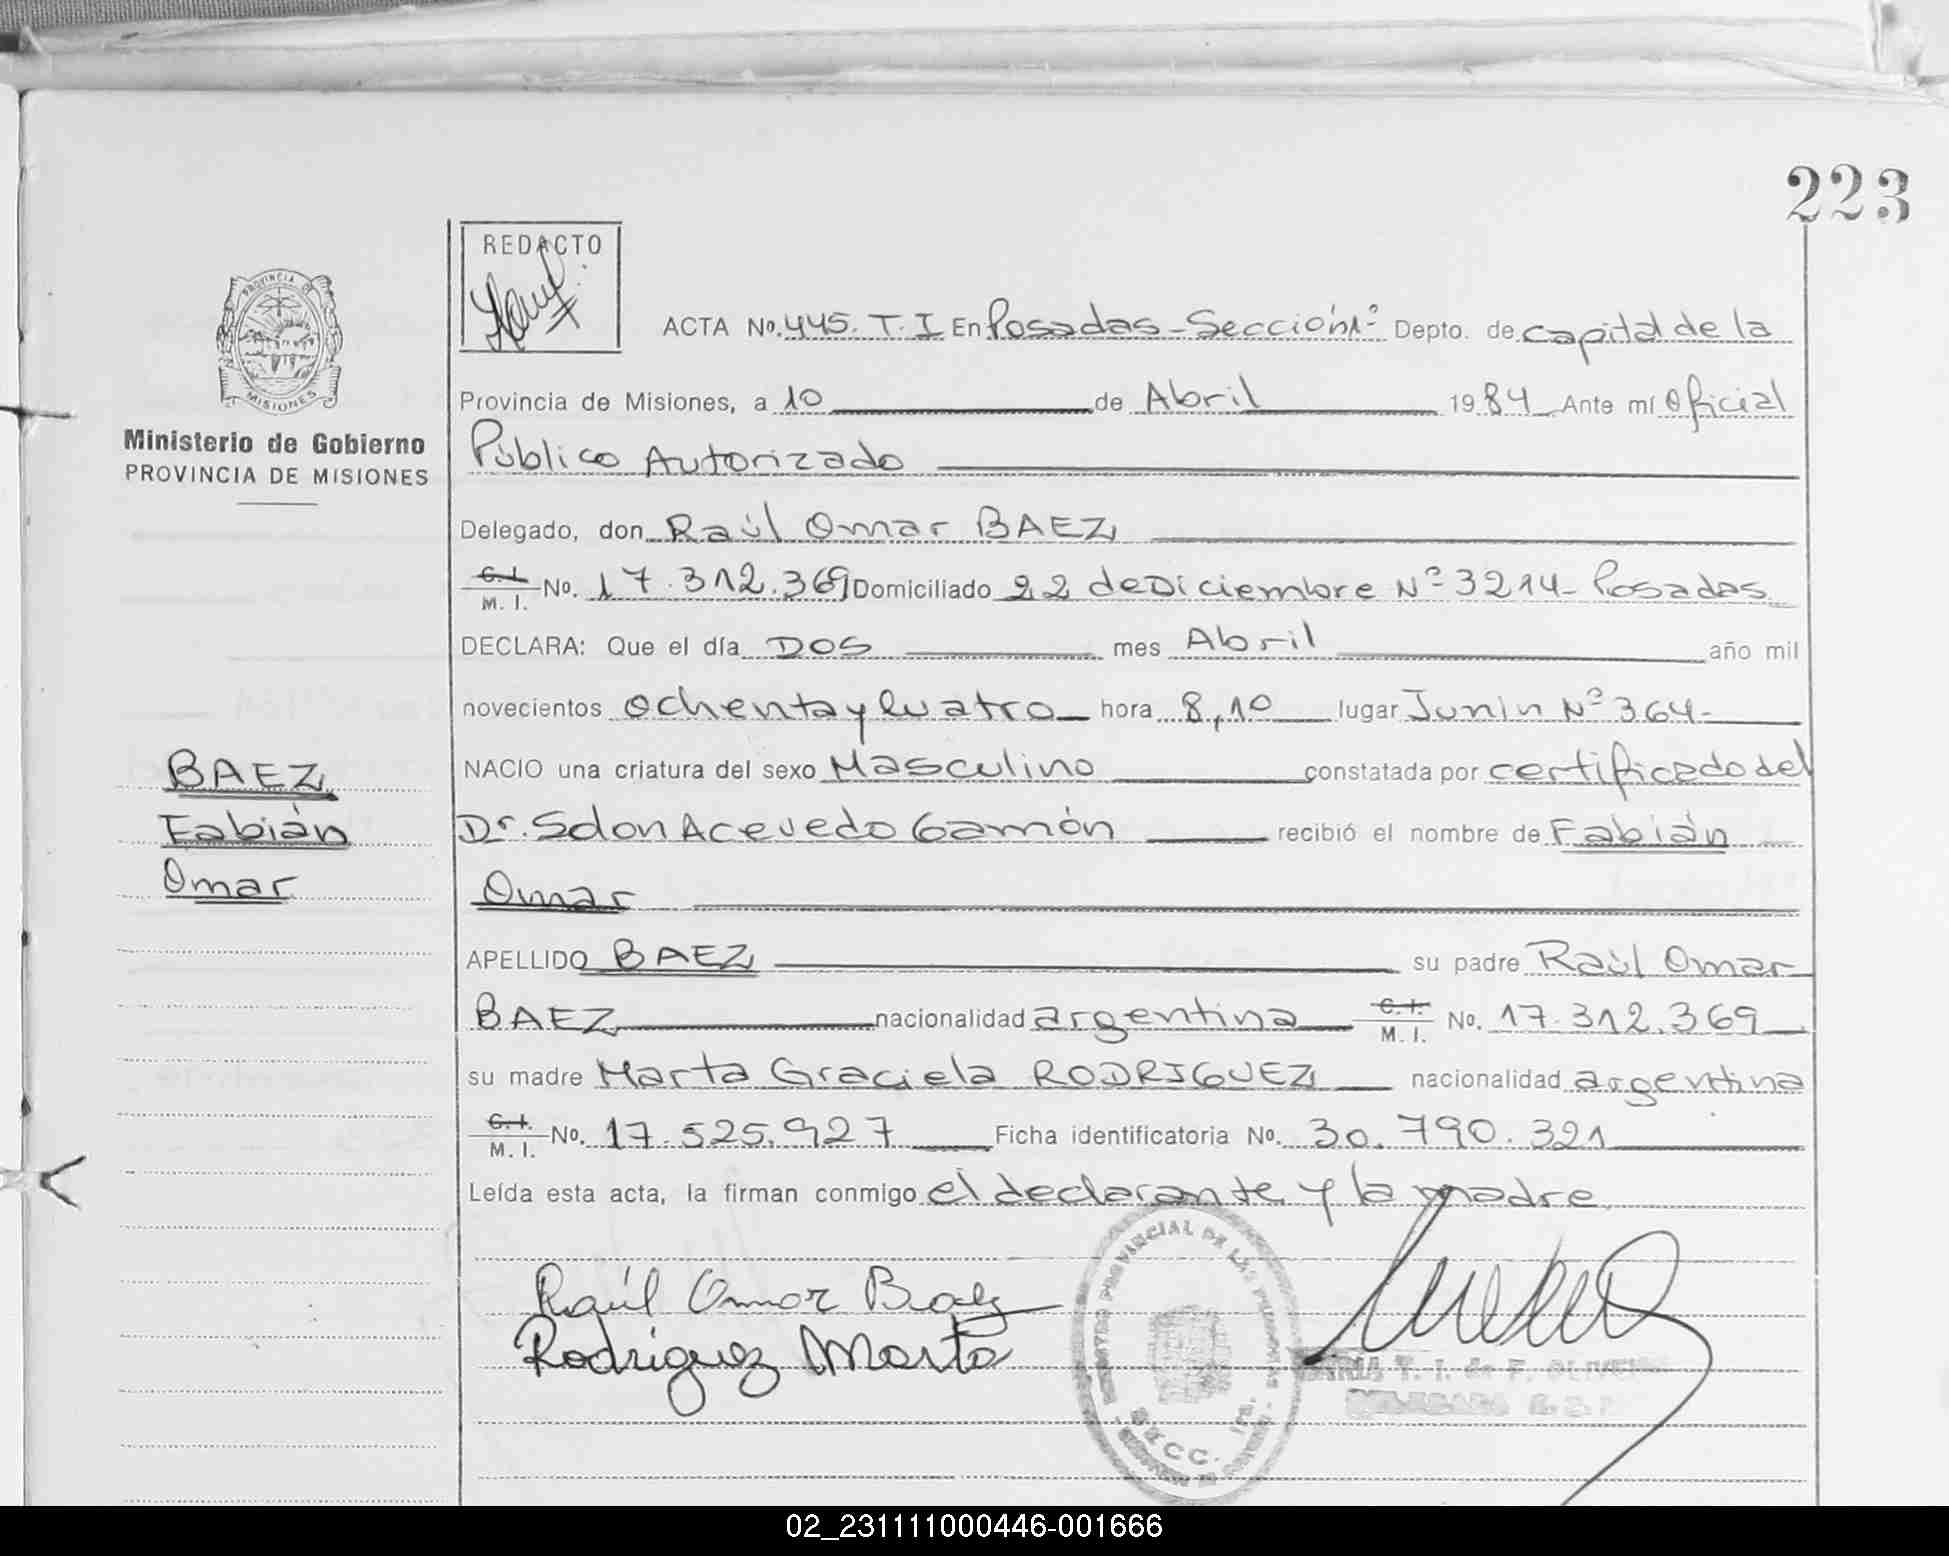 223
REDACTO
PROVINCIA DE
MISIONES
Ministerio de Gobierno
PROVINCIA DE MISIONES
ACTA No. 445. T. I En Posadas - Sección 1º Depto. de capital de la
Provincia de Misiones, a 10 de Abril 1984 Ante mí Oficial
Público Autorizado
Delegado, don Raúl Omar BAEZ
C.I. M. I. No. 17.312.369 Domiciliado 22 de Diciembre Nº 3214 - Posadas
DECLARA: Que el día DOS mes Abril año mil
novecientos ochenta y cuatro hora 8,10 lugar Junín Nº 364-
NACIO una criatura del sexo Masculino constatada por certificado del
Dr. Solon Acevedo Gamón recibió el nombre de Fabián
Omar
APELLIDO BAEZ su padre Raúl Omar
BAEZ nacionalidad argentina C.I. M. I. No. 17.312.369
su madre Marta Graciela RODRIGUEZ nacionalidad argentina
C.I. M. I. No. 17.525.927 Ficha identificatoria No. 30.790.321
Leída esta acta, la firman conmigo el declarante y la madre
BAEZ
Fabián
Omar
Raúl Omar Baez
Rodriguez Marta
PROVINCIAL DE LAS
SECC. 1ra.
MARIA T. I. de F. OLIVEIRA
02_231111000446-001666